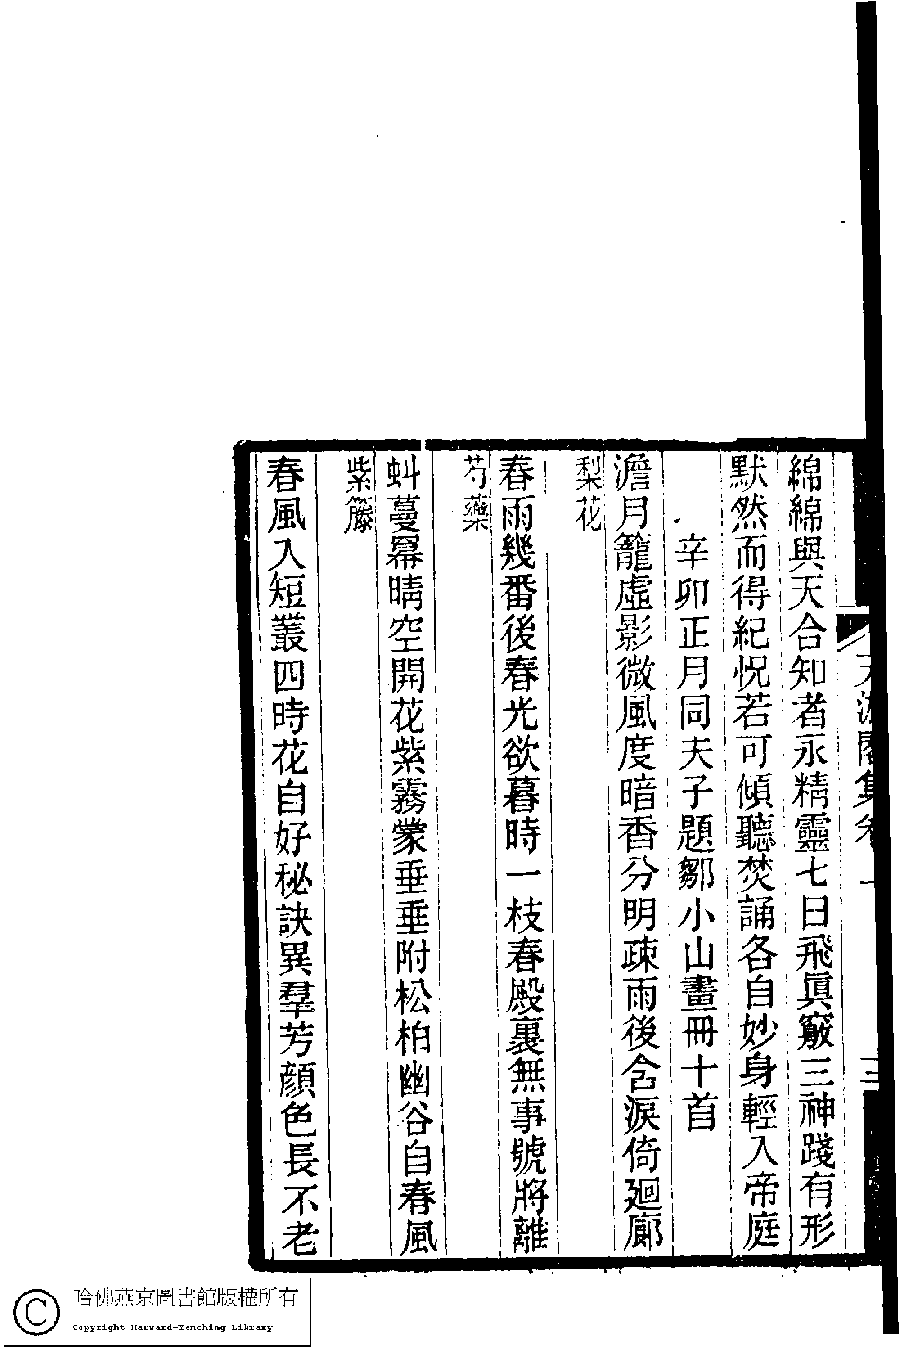 綿綿與天合知者永精靈七日飛眞竅三神踐有形
默然而得紀怳若可傾聽焚誦各自妙身輕入帝庭
辛卯正月同夫子題鄒小山畫冊十首
澹月籠虛影微風度暗香分明疎雨後含淚倚廻廊
梨花
春雨幾番後春光欲暮時一枝春殿裏無事號將離
芍藥
蚪蔓冪晴空開花紫霧蒙垂垂附松柏幽谷自春風
紫籐
春風入短叢四時花自好秘訣異羣芳顔色長不老
天游閣集卷一
三
哈佛燕京圖書館版權所有
Copyright Harvard-Yenching Library